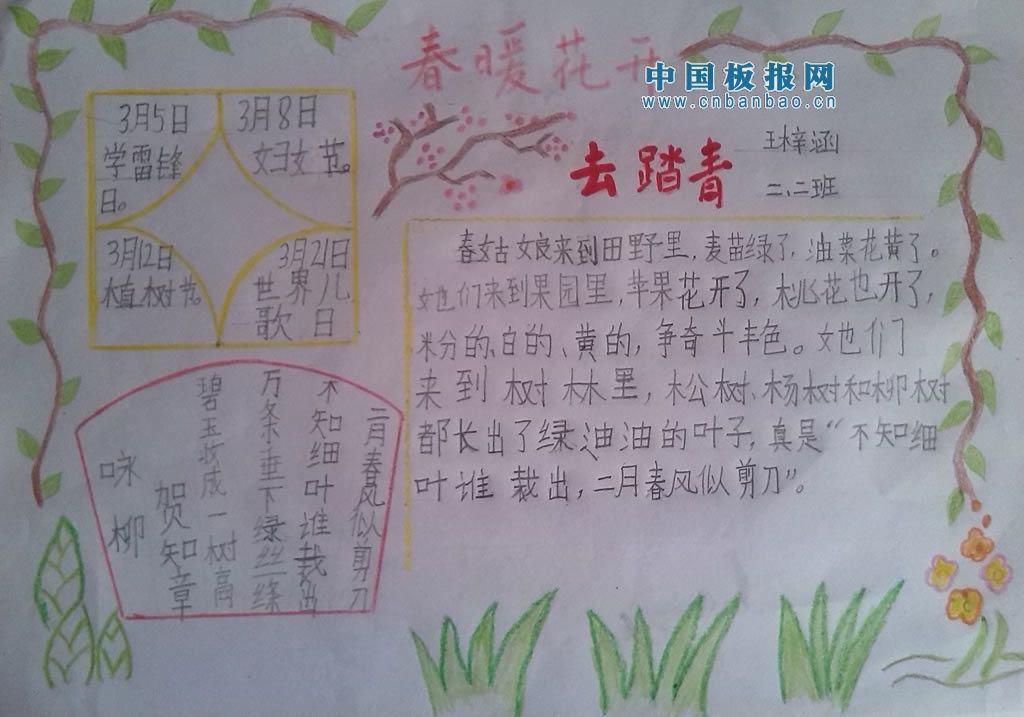 春暖花开
中国板报网
www.cnbanbao.cn
去踏青
王梓涵
二、二班
3月5日
学雷锋
日。
3月8日
妇女节。
3月12日
植树节。
3月21日
世界儿
歌日
春姑娘来到田野里，麦苗绿了，油菜花黄了。
她们来到果园里，苹果花开了，桃花也开了，
粉的、白的、黄的，争奇斗丰色。她们
来到树林里，松树、杨树和柳树
都长出了绿油油的叶子，真是“不知细
叶谁裁出，二月春风似剪刀”。
咏柳
贺知章
碧玉妆成一树高
万条垂下绿丝绦
不知细叶谁裁出
二月春风似剪刀